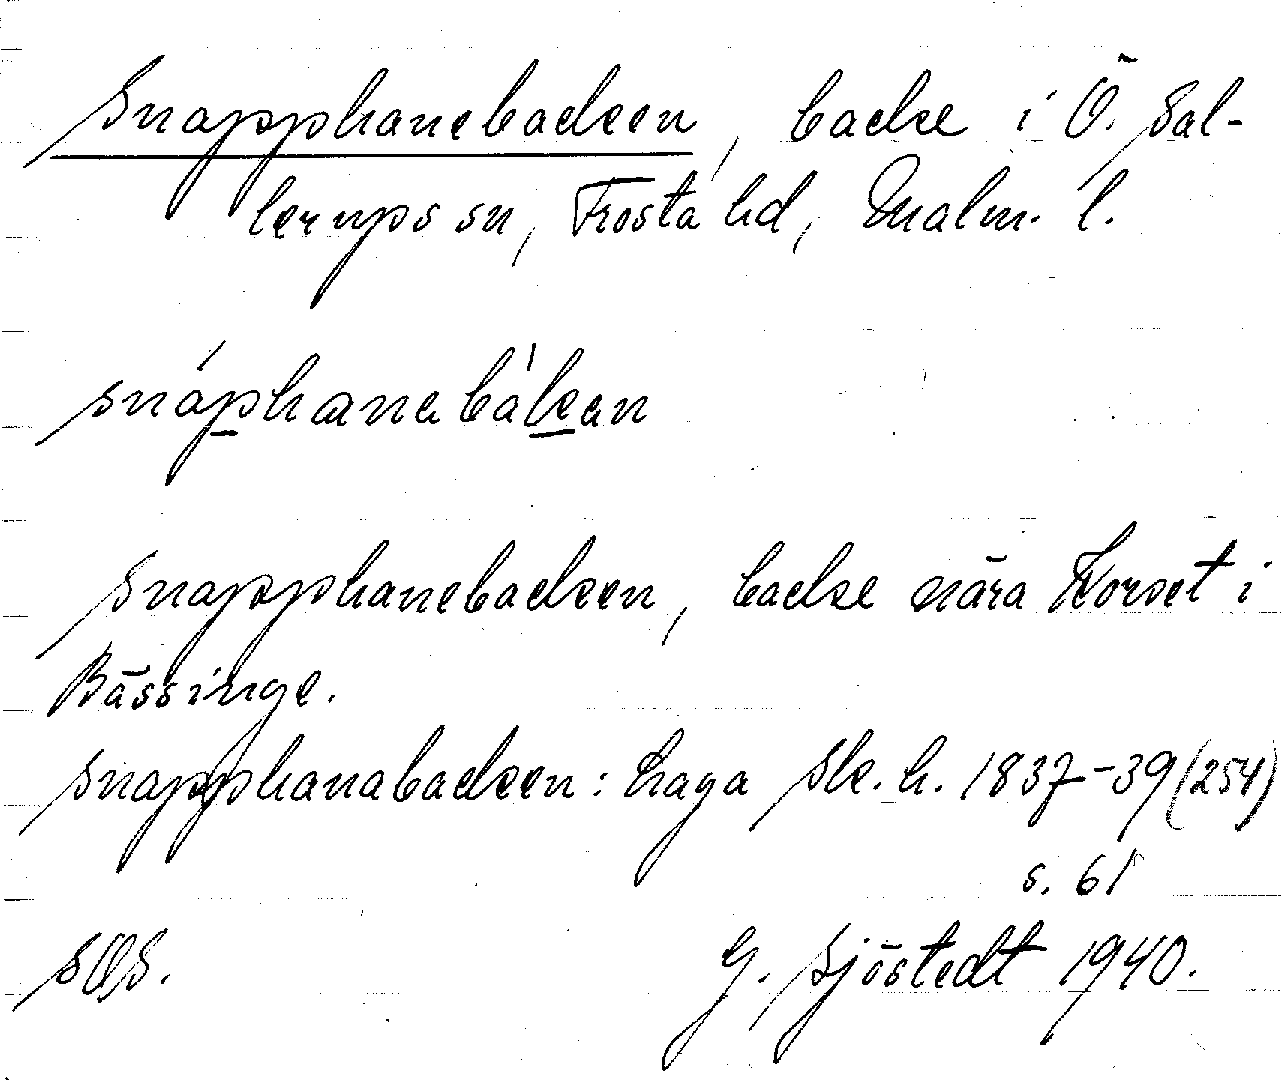 Snapphanebacken, backe i Ö. Sal-
lerups sn, Frosta hd, Malm. l.
snáphanebàkan
Snapphanebacken, backe nära Korset i
Bässinge.
Snapphanabacken: Laga Sk. h. 1837-39 (254)
s. 61
G. Sjöstedt 1940.